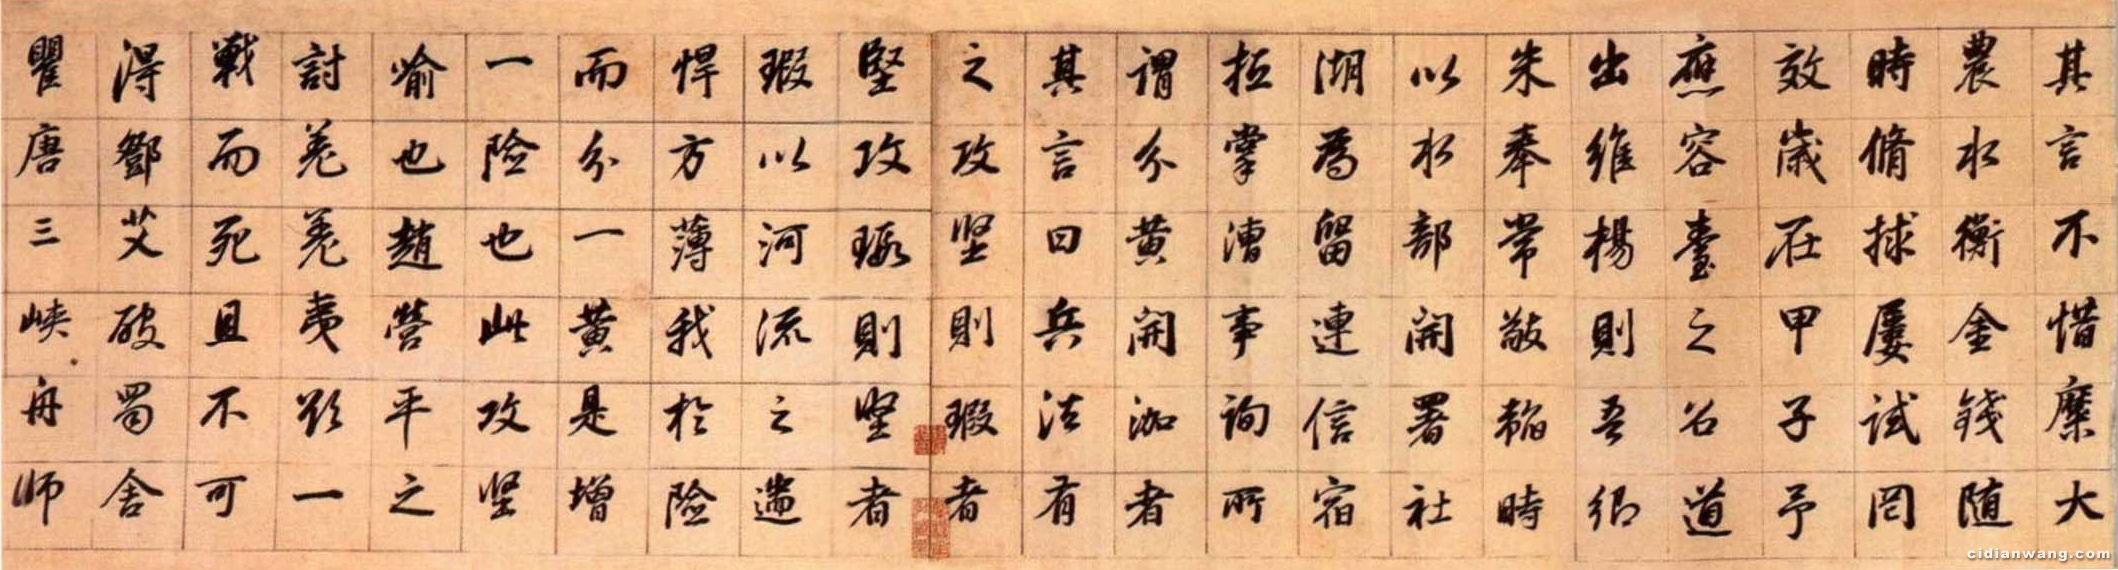 其言不惜糜大
農水衡金錢随
時脩捄屡试罔
效歳在甲子予
應容臺之召道
出維楊則吾郷
朱奉常敬韜時
以水部開署社
湖為留連信宿
抵掌漕事詢所
謂分黄開泇者
其言曰兵法有
之攻坚則瑕者
堅攻瑕則坚者
瑕以河流之遄
悍方薄我於險
而分一黄是增
一險也此攻坚
喻也趙营平之
討羌羌夷欲一
戰而死且不可
得鄧艾破蜀舍
瞿唐三峡舟師
cidianwang.com